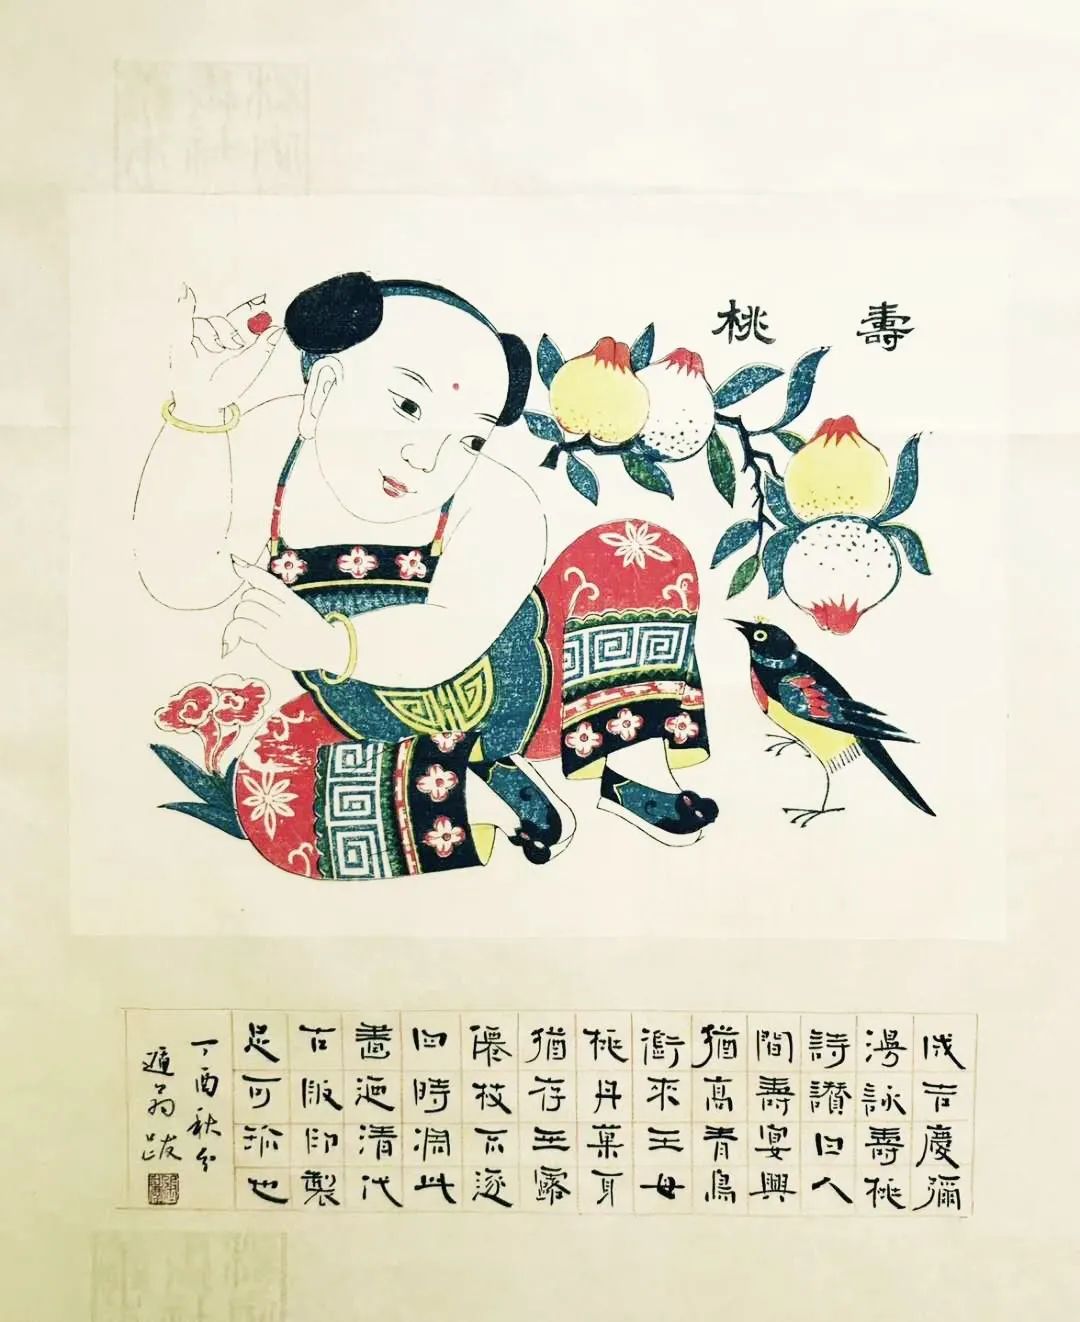 壽桃
成吉慶彌
漫詠壽桃
詩讚曰人
間壽宴興
猶高青鳥
銜來王母
桃丹菓耳
猶存玉露
僊枝不逐
四時凋此
畫迺清代
古版印製
足可珎也
丁酉秋分
遁翁跋